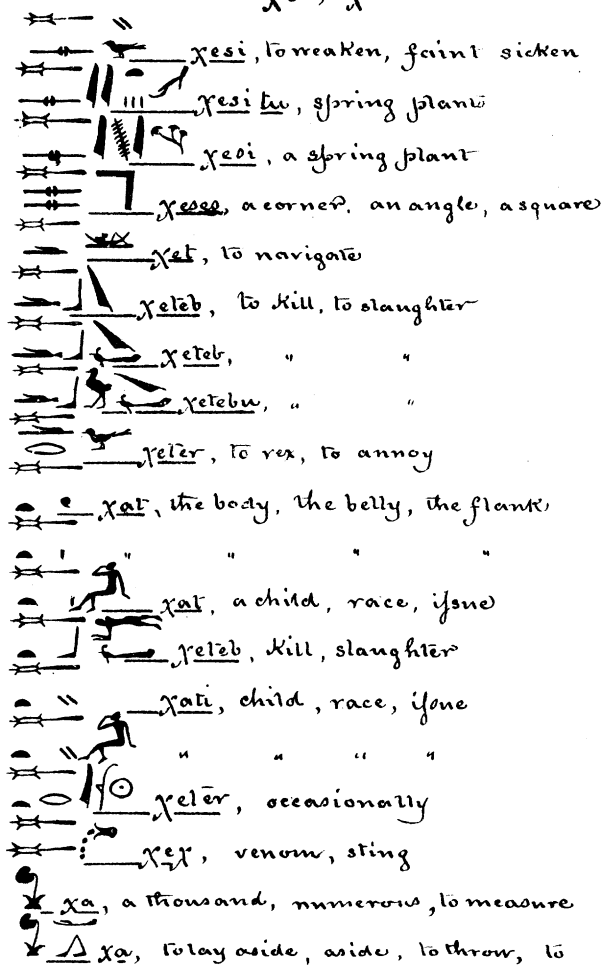 χesi, to weaken, faint sicken
χesi tu, spring plant
χesi, a spring plant
χeses, a corner, an angle, a square
χet, to navigate
χeteb, to kill, to slaughter
χeteb, " "
χetebu, " "
χeter, to vex, to annoy
χat, the body, the belly, the flank
" " " "
χat, a child, race, issue
χeteb, kill, slaughter
χati, child, race, issue
" " " "
χeter, occasionally
χeχ, venom, sting
χa, a thousand, numerous, to measure
χa, to lay aside, aside, to throw, to